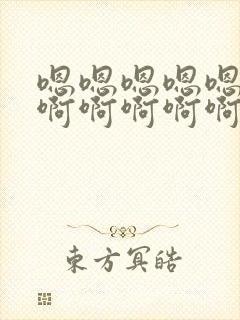 嗯嗯嗯嗯嗯
啊啊啊啊啊
東方冥皓